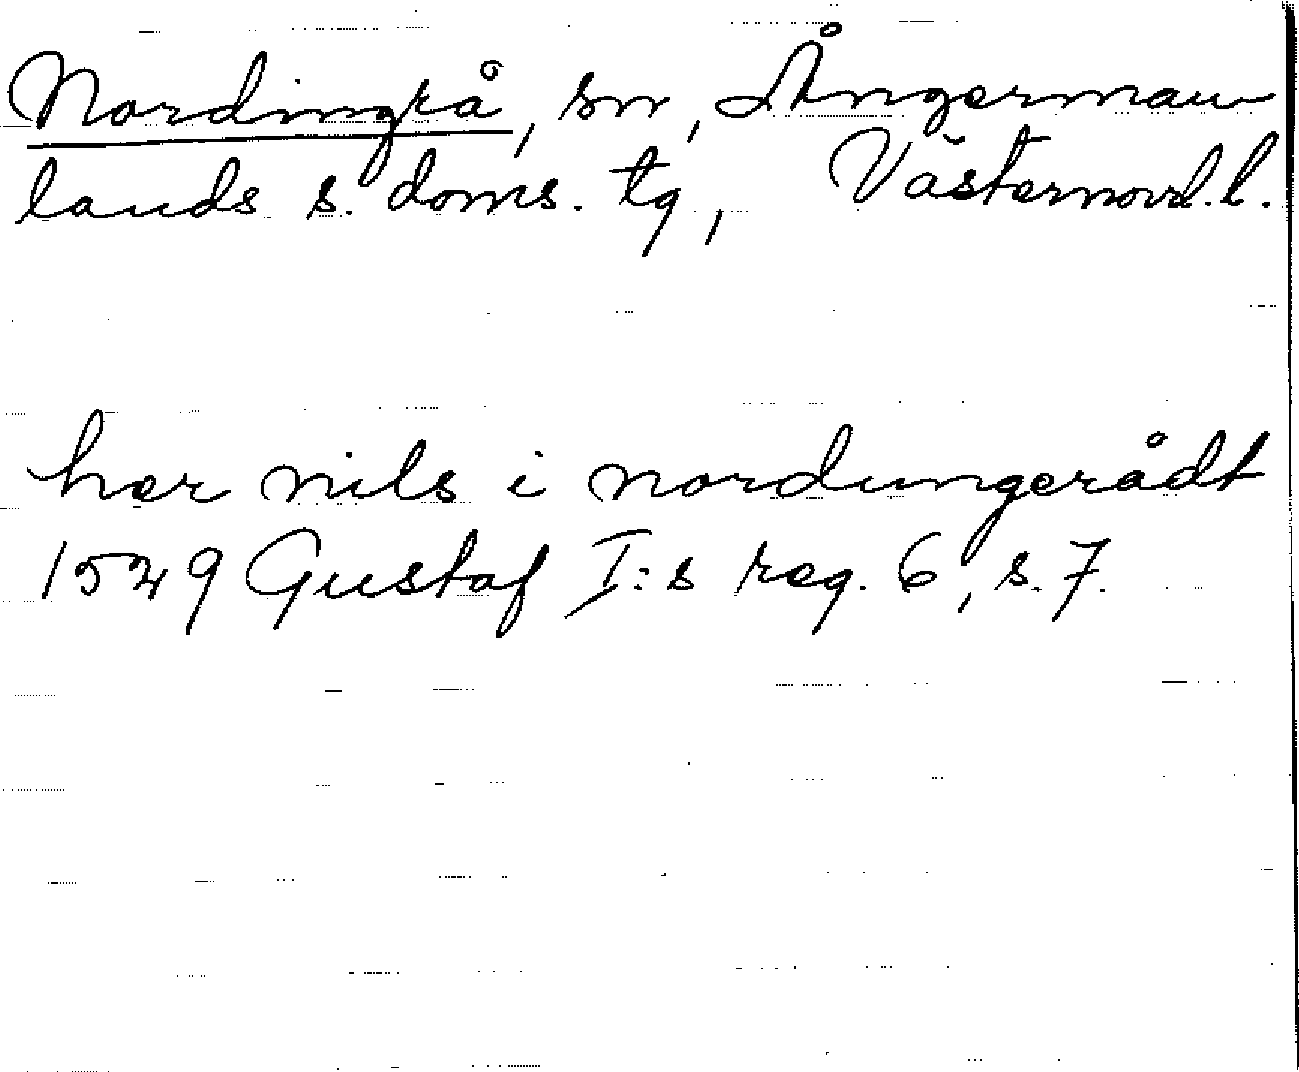 Nordingrå, sn, Ångerman
lands s. doms. tg, Västernorrl. l.
her nils i nordungerådt
1529 Gustaf I:s reg. 6, s. 7.